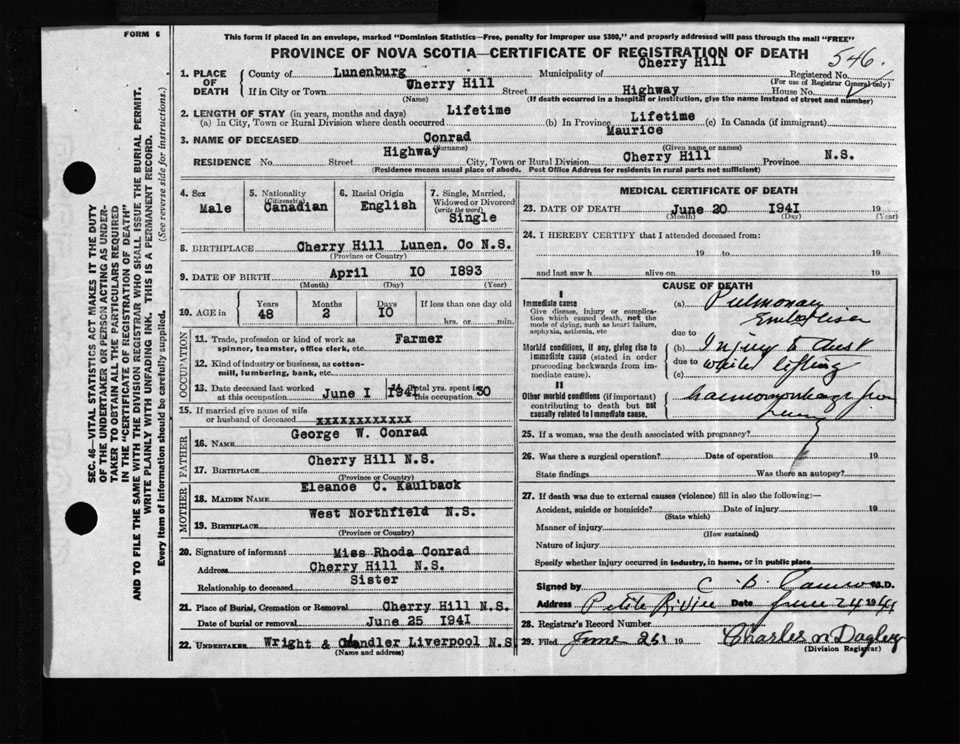 FORM 6
This form if placed in an envelope, marked "Dominion Statistics—Free, penalty for improper use $300," and properly addressed will pass through the mail "FREE"
PROVINCE OF NOVA SCOTIA—CERTIFICATE OF REGISTRATION OF DEATH
546.
1. PLACE OF DEATH
County of Lunenburg Municipality of Cherry Hill Registered No.
(For use of Registrar General only)
If in City or Town Cherry Hill Street Highway House No.
(Name) (If death occurred in a hospital or institution, give the name instead of street and number)
2. LENGTH OF STAY (in years, months and days)
(a) In City, Town or Rural Division where death occurred Lifetime (b) In Province Lifetime (c) In Canada (if immigrant)
3. NAME OF DECEASED Conrad Maurice
(Surname) (Given name or names)
RESIDENCE No. Street Highway City, Town or Rural Division Cherry Hill Province N.S.
(Residence means usual place of abode. Post Office Address for residents in rural parts not sufficient)
4. Sex Male
5. Nationality (Citizenship) Canadian
6. Racial Origin English
7. Single, Married, Widowed or Divorced (write the word) Single
8. BIRTHPLACE Cherry Hill Lunen. Co N.S.
(Province or Country)
9. DATE OF BIRTH April 10 1893
(Month) (Day) (Year)
10. AGE in Years 48 Months 2 Days 10 If less than one day old hrs. or min.
OCCUPATION
11. Trade, profession or kind of work as spinner, teamster, office clerk, etc. Farmer
12. Kind of industry or business, as cotton-mill, lumbering, bank, etc.
13. Date deceased last worked at this occupation June 1 1941 14. Total yrs. spent in this occupation 30
15. If married give name of wife or husband of deceased xxxxxxxxxxxx
FATHER
16. NAME George W. Conrad
17. BIRTHPLACE Cherry Hill N.S.
(Province or Country)
MOTHER
18. MAIDEN NAME Eleanoe C. Kaulback
19. BIRTHPLACE West Northfield N.S.
(Province or Country)
20. Signature of informant Miss Rhoda Conrad
Address Cherry Hill N.S.
Relationship to deceased Sister
21. Place of Burial, Cremation or Removal Cherry Hill N.S.
Date of burial or removal June 25 1941
22. UNDERTAKER Wright & Chandler Liverpool N.S
(Name and address)
MEDICAL CERTIFICATE OF DEATH
23. DATE OF DEATH June 20 1941 19
(Month) (Day) (Year)
24. I HEREBY CERTIFY that I attended deceased from:
19 to 19
and last saw h alive on 19
CAUSE OF DEATH
I
Immediate cause
Give disease, injury or complication which caused death, not the mode of dying, such as heart failure, asphyxia, asthenia, etc
(a) Pulmonary
Embolism
due to
Morbid conditions, if any, giving rise to immediate cause (stated in order proceeding backwards from immediate cause).
(b) Injury to chest
due to while lifting
(c)
II
Other morbid conditions (if important) contributing to death but not causally related to immediate cause.
haemorrhage from
lung
25. If a woman, was the death associated with pregnancy?
26. Was there a surgical operation? Date of operation 19
State findings Was there an autopsy?
27. If death was due to external causes (violence) fill in also the following:—
Accident, suicide or homicide? Date of injury 19
(State which)
Manner of injury
(How sustained)
Nature of injury
Specify whether injury occurred in industry, in home, or in public place
Signed by C. B. M.D.
Address Petite Riviere Date June 24 1941
28. Registrar's Record Number
29. Filed June 25 19 Charles N Dagley
(Division Registrar)
SEC. 46—VITAL STATISTICS ACT MAKES IT THE DUTY
OF THE UNDERTAKER OR PERSON ACTING AS UNDER-
TAKER TO OBTAIN ALL THE PARTICULARS REQUIRED
IN THE "CERTIFICATE OF REGISTRATION OF DEATH"
AND TO FILE THE SAME WITH THE DIVISION REGISTRAR WHO SHALL ISSUE THE BURIAL PERMIT.
WRITE PLAINLY WITH UNFADING INK. THIS IS A PERMANENT RECORD.
Every item of information should be carefully supplied. (See reverse side for instructions.)